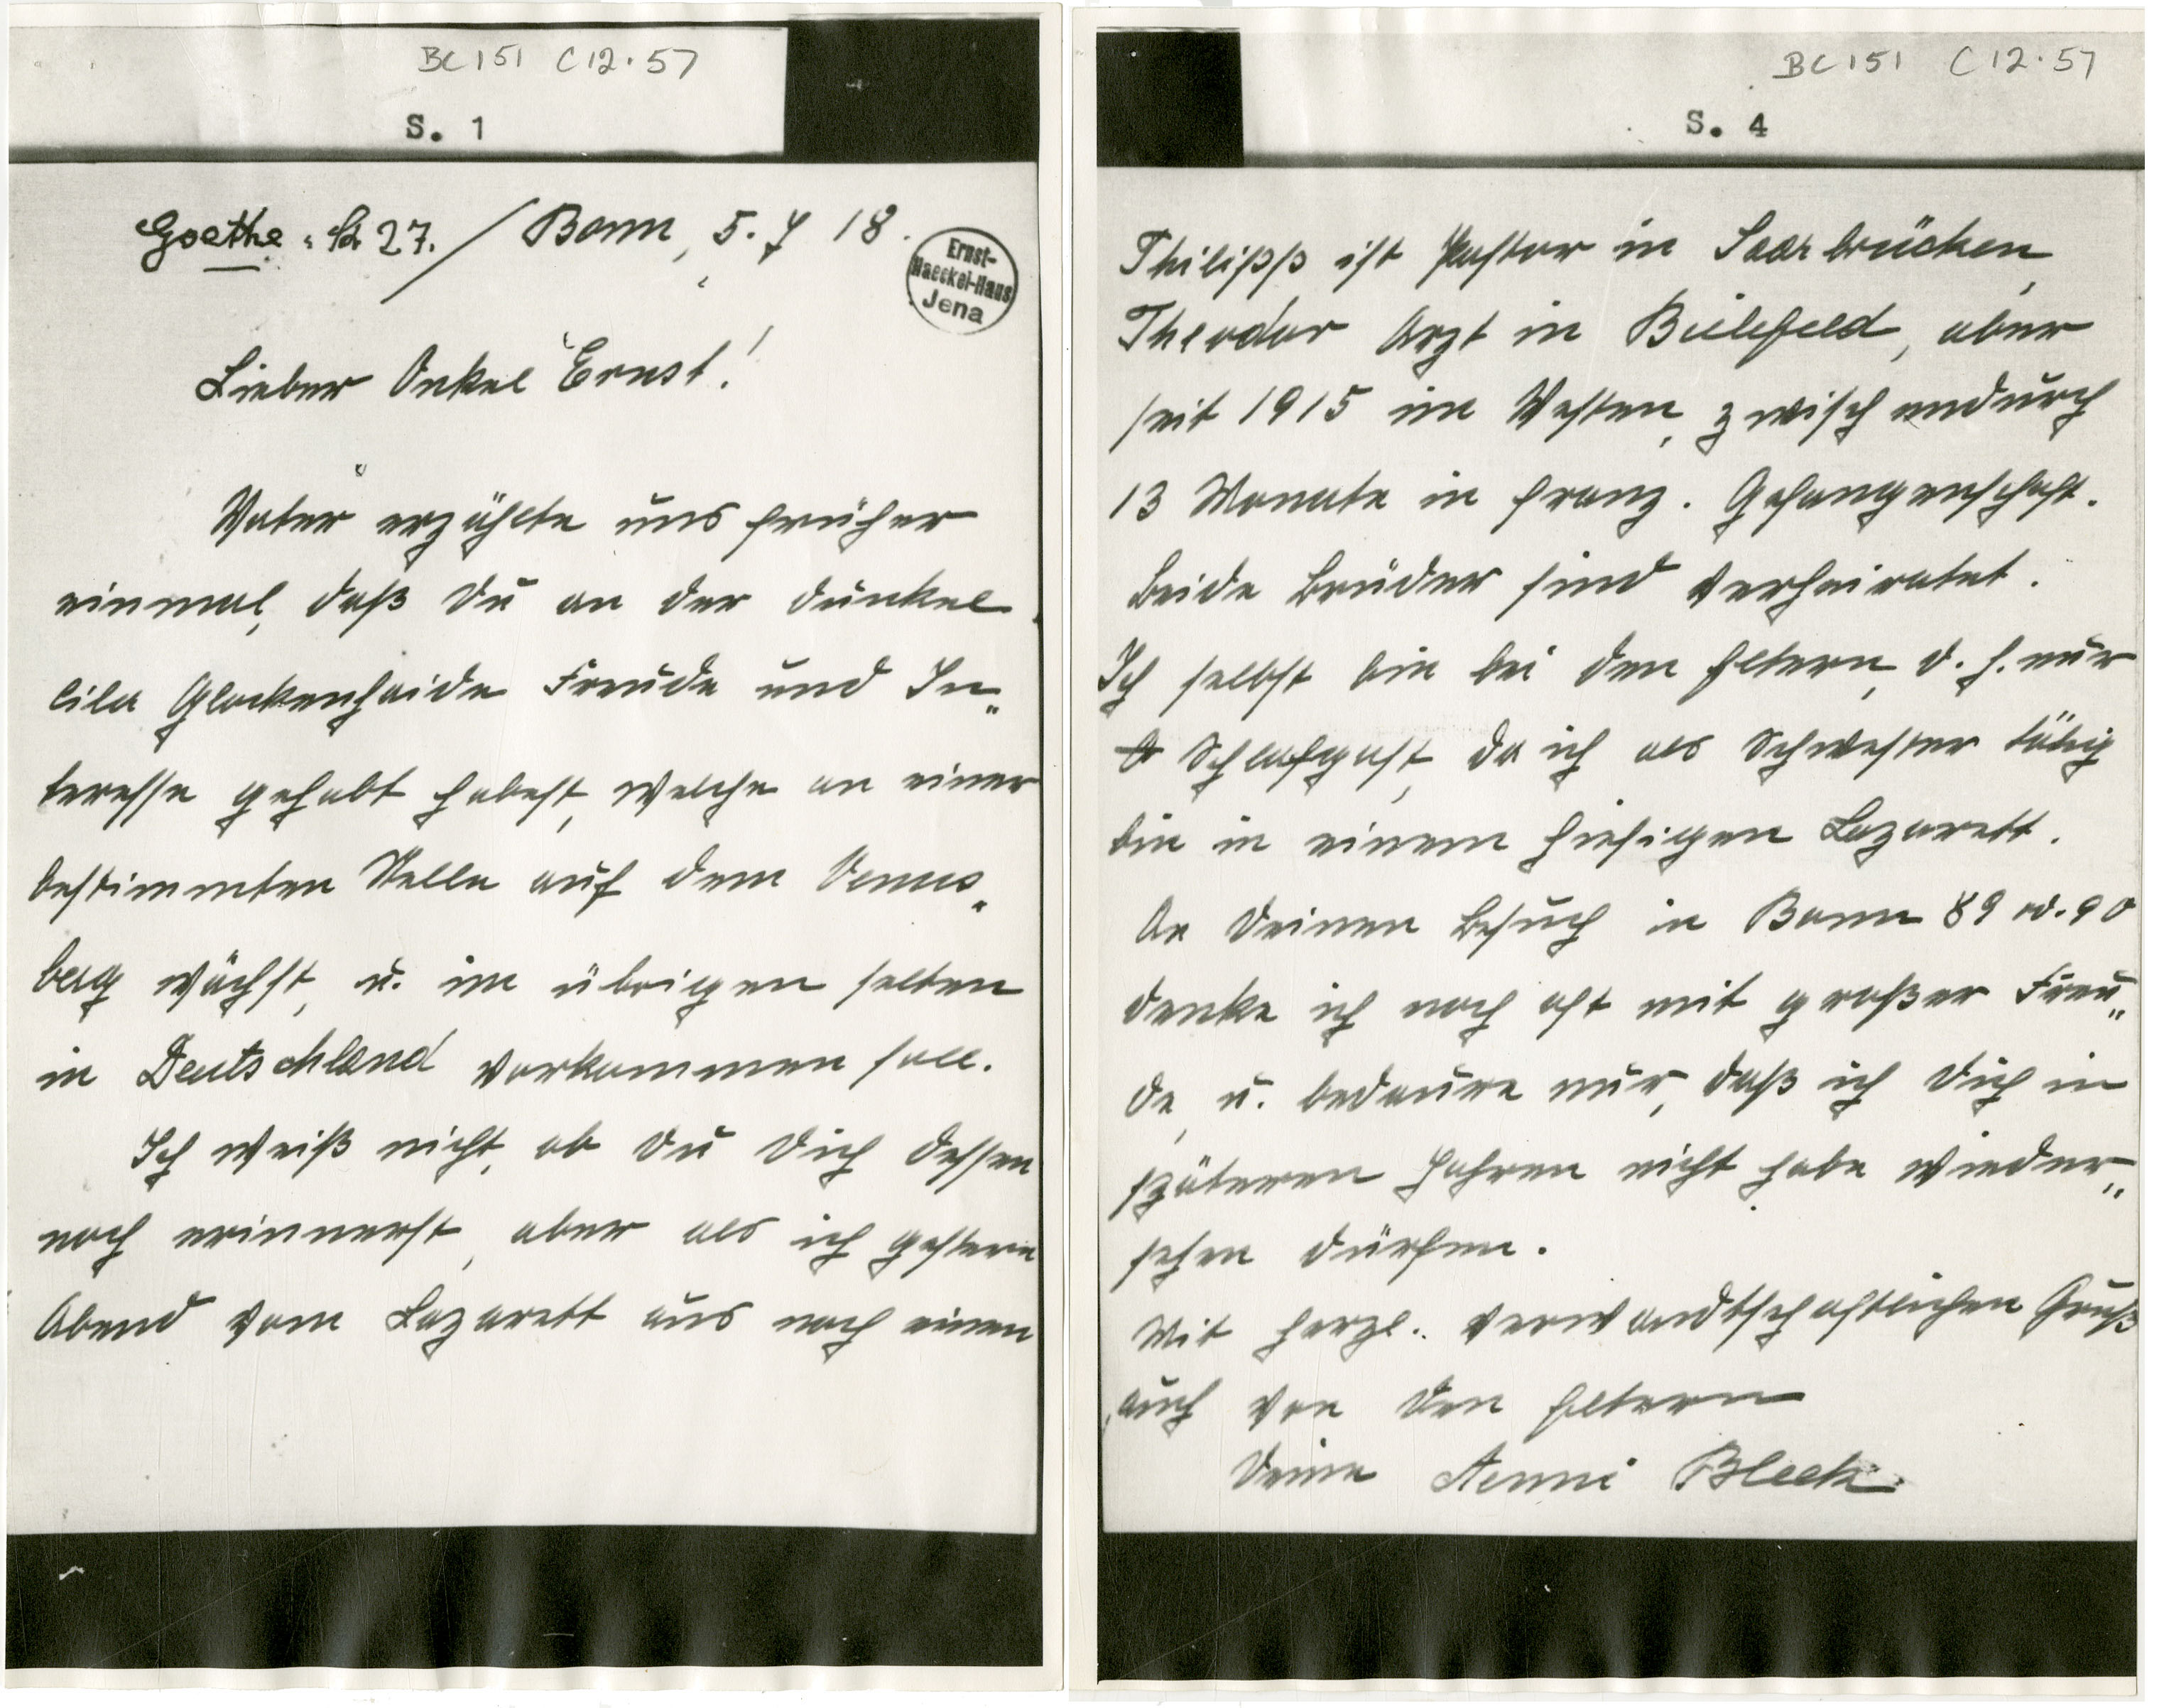 BC 151 C 12.57
S. 1
Goethe-Str 27. / Bonn, 5. 7 18.
Ernst-
Haeckel-Haus
Jena
Lieber Onkel Ernst!
Vater erzählte uns früher
einmal, daß Du an der dunkel
lila Glockenheide Freude und In„
teresse gehabt habest, welche an einer
bestimmten Stelle auf dem Venus„
berg wächst, u. im übrigen selten
in Deutschland vorkommen soll.
Ich weiß nicht, ob Du Dich dessen
noch erinnerst, aber als ich gestern
Abend vom Lazarett aus noch einen
BC 151 C 12.57
S. 4
Philipp ist Pastor in Saarbrücken,
Theodor Arzt in Bielefeld, aber
seit 1915 im Westen, zwischendurch
13 Monate in franz. Gefangenschaft.
Beide Brüder sind verheiratet.
Ich selbst bin bei den Eltern, d. h. nur
Schlafgast, da ich als Schwester tätig
bin in einem hiesigen Lazarett.
An Deinen Besuch in Bonn 89 od. 90
denke ich noch oft mit großer Freu„
de, u. bedaure nur, daß ich Dich in
späteren Jahren nicht habe wieder„
sehen dürfen.
Mit herzl. verwandtschaftlichen Gruß
auch von den Eltern
Deine Aenni Bleek